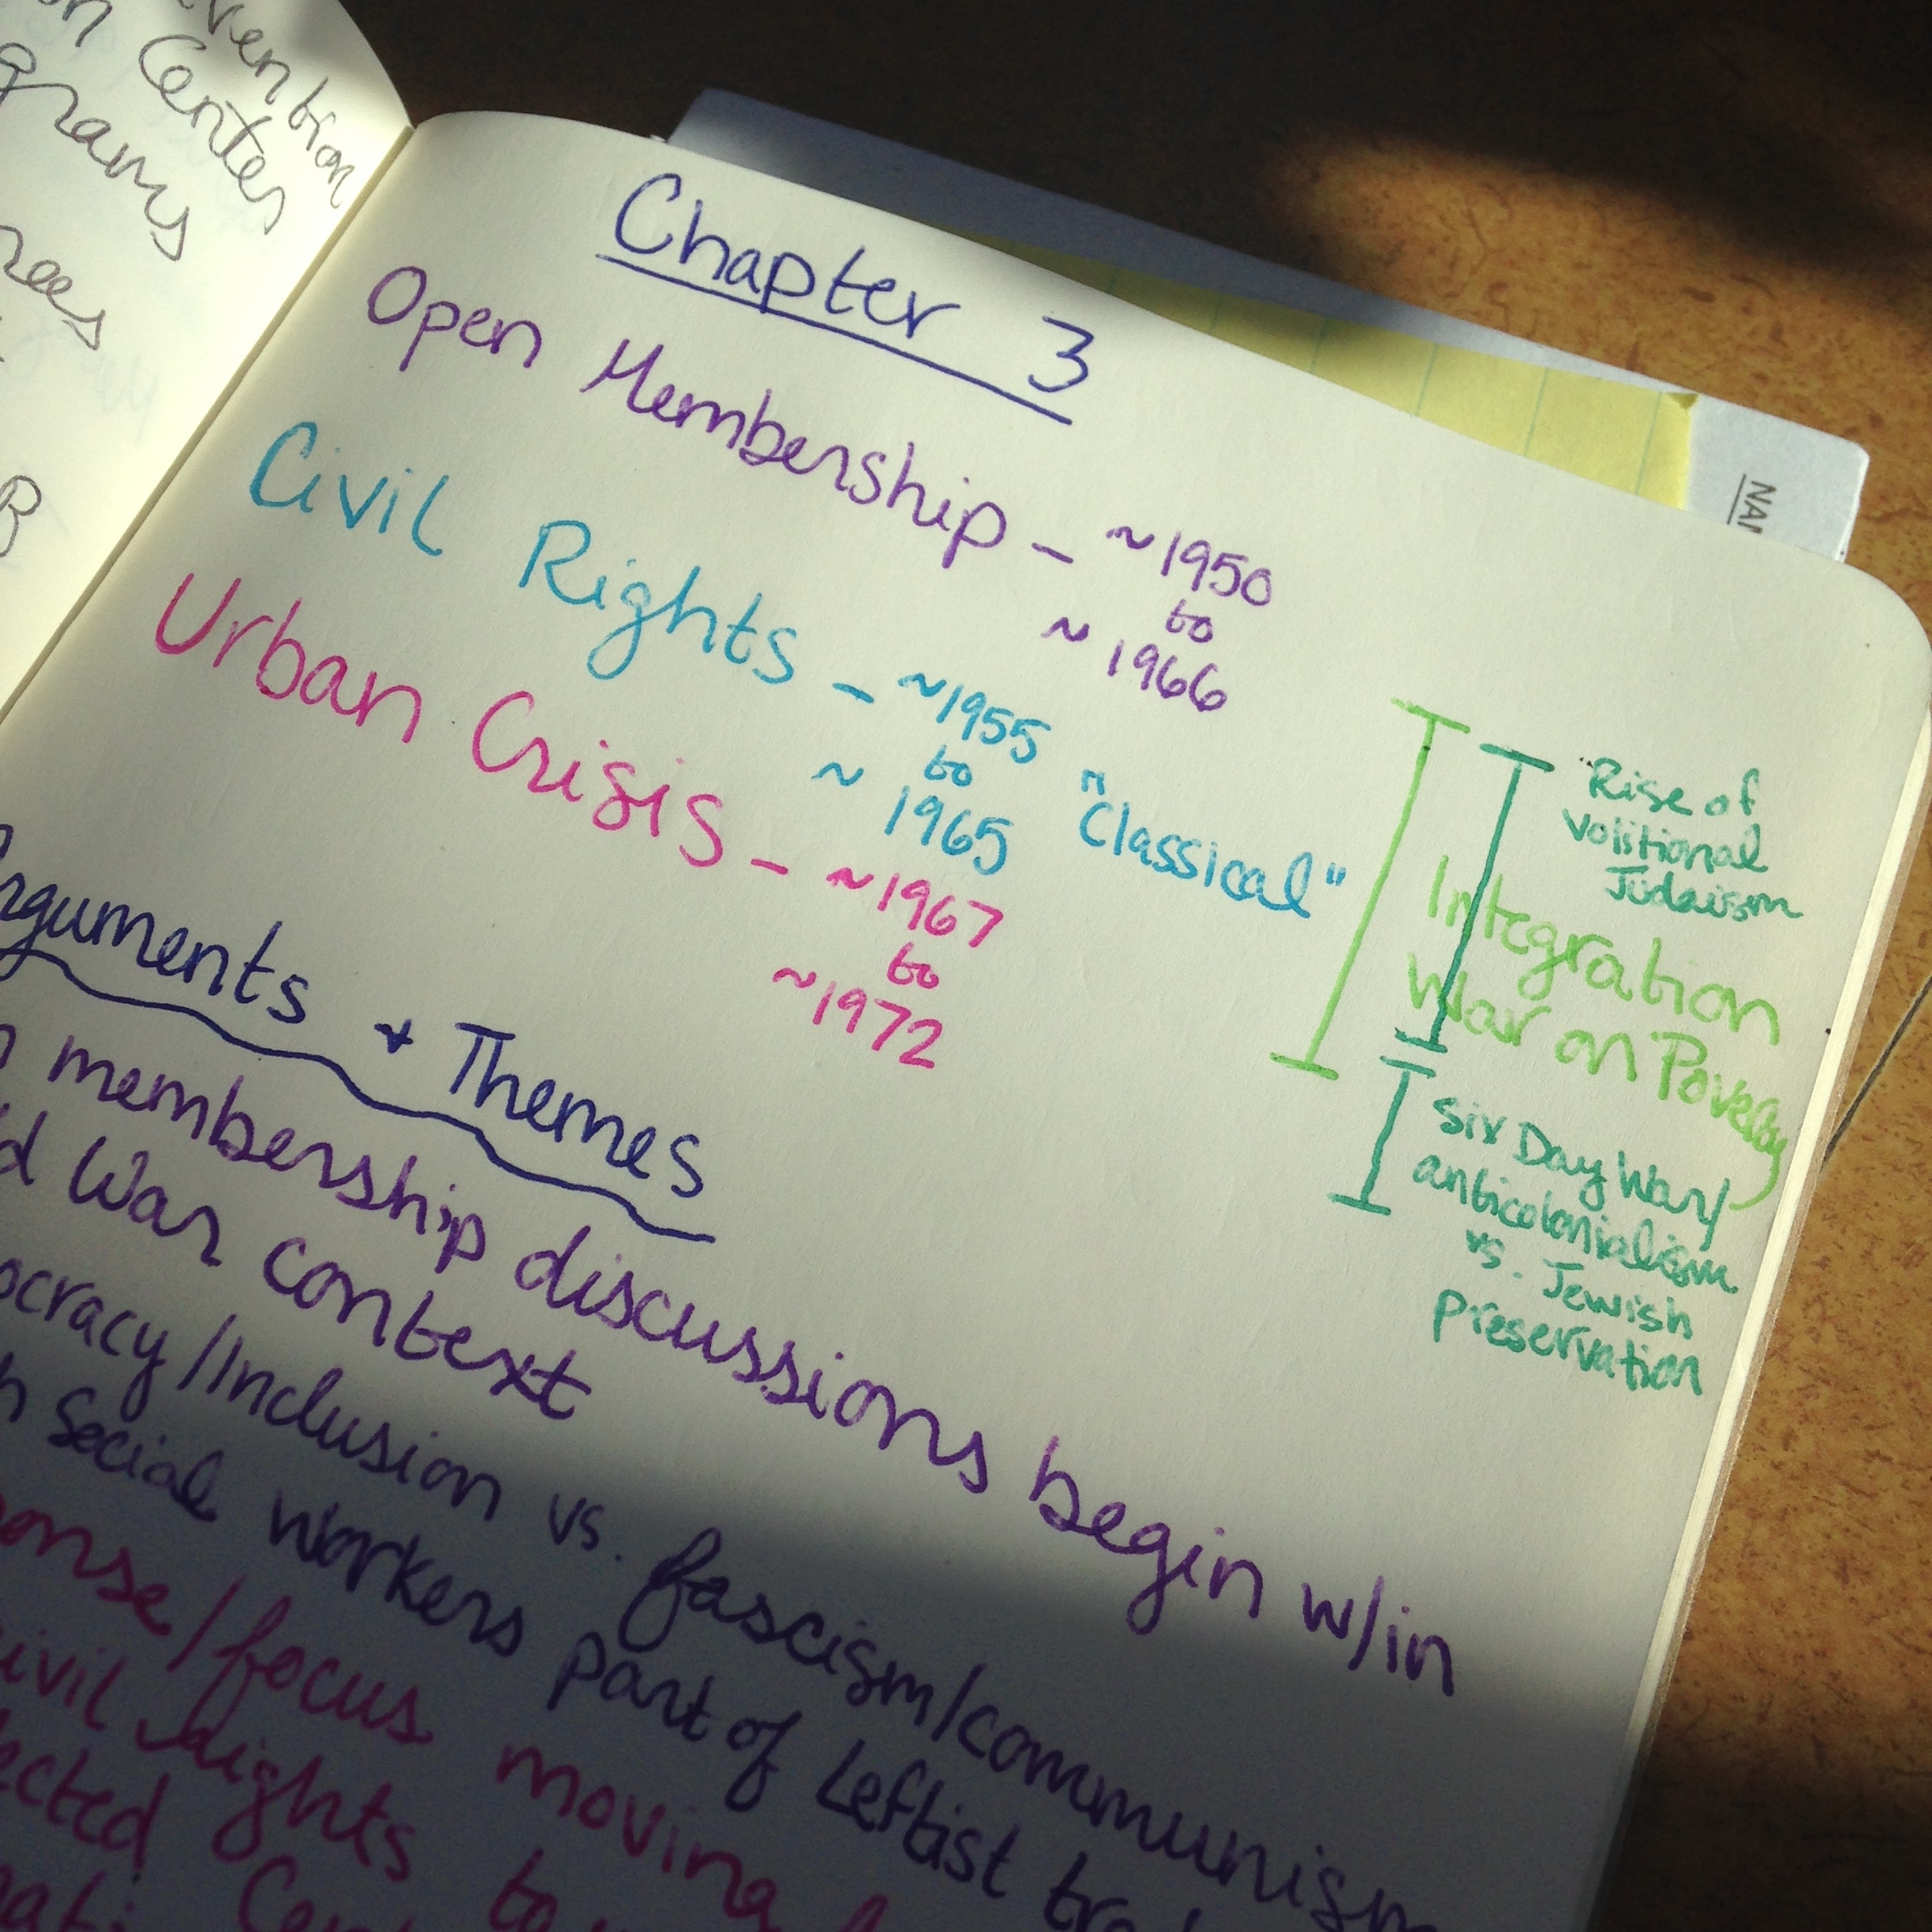 Center
Chapter 3
Open Membership - ~1950
to
~ 1966
Civil Rights - ~1955
to
~ 1965
"Classical"
Urban Crisis - ~1967
to
~1972
Rise of
Volitional
Judaism
Integration
War on Poverty
Six Day War/
anticolonialism
vs. Jewish
preservation
Arguments + Themes
membership discussions begin w/in
War context
ocracy/Inclusion vs. fascism/communism
Social workers part of Leftist
onse/focus moving
civil rights to
ected
NAM